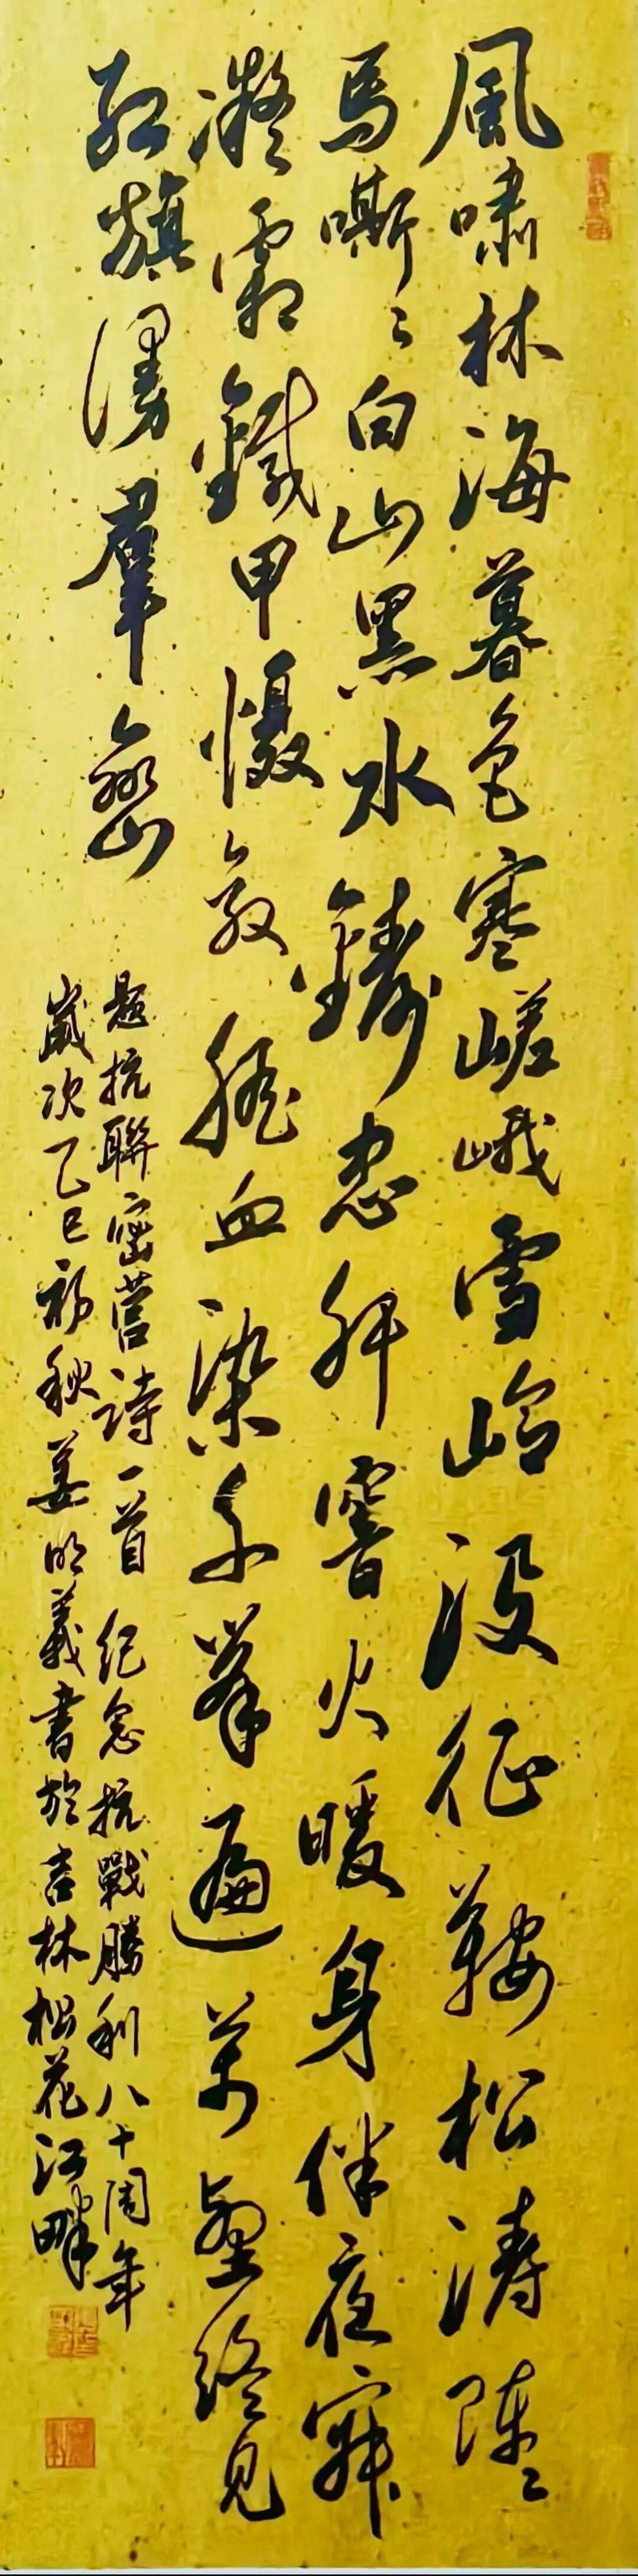 風嘯林海暮色寒嵯峨雪嶺没征鞍松濤陣〻
馬嘶〻白山黑水鑄忠肝窨火暖身伴夜寐
凝霜鐵甲懾敵胆血染千峯遍萬壑終見
紅旗漫羣巒
題抗聯密营诗一首 纪念抗戰勝利八十周年
歲次乙巳初秋姜明義書於吉林松花江畔